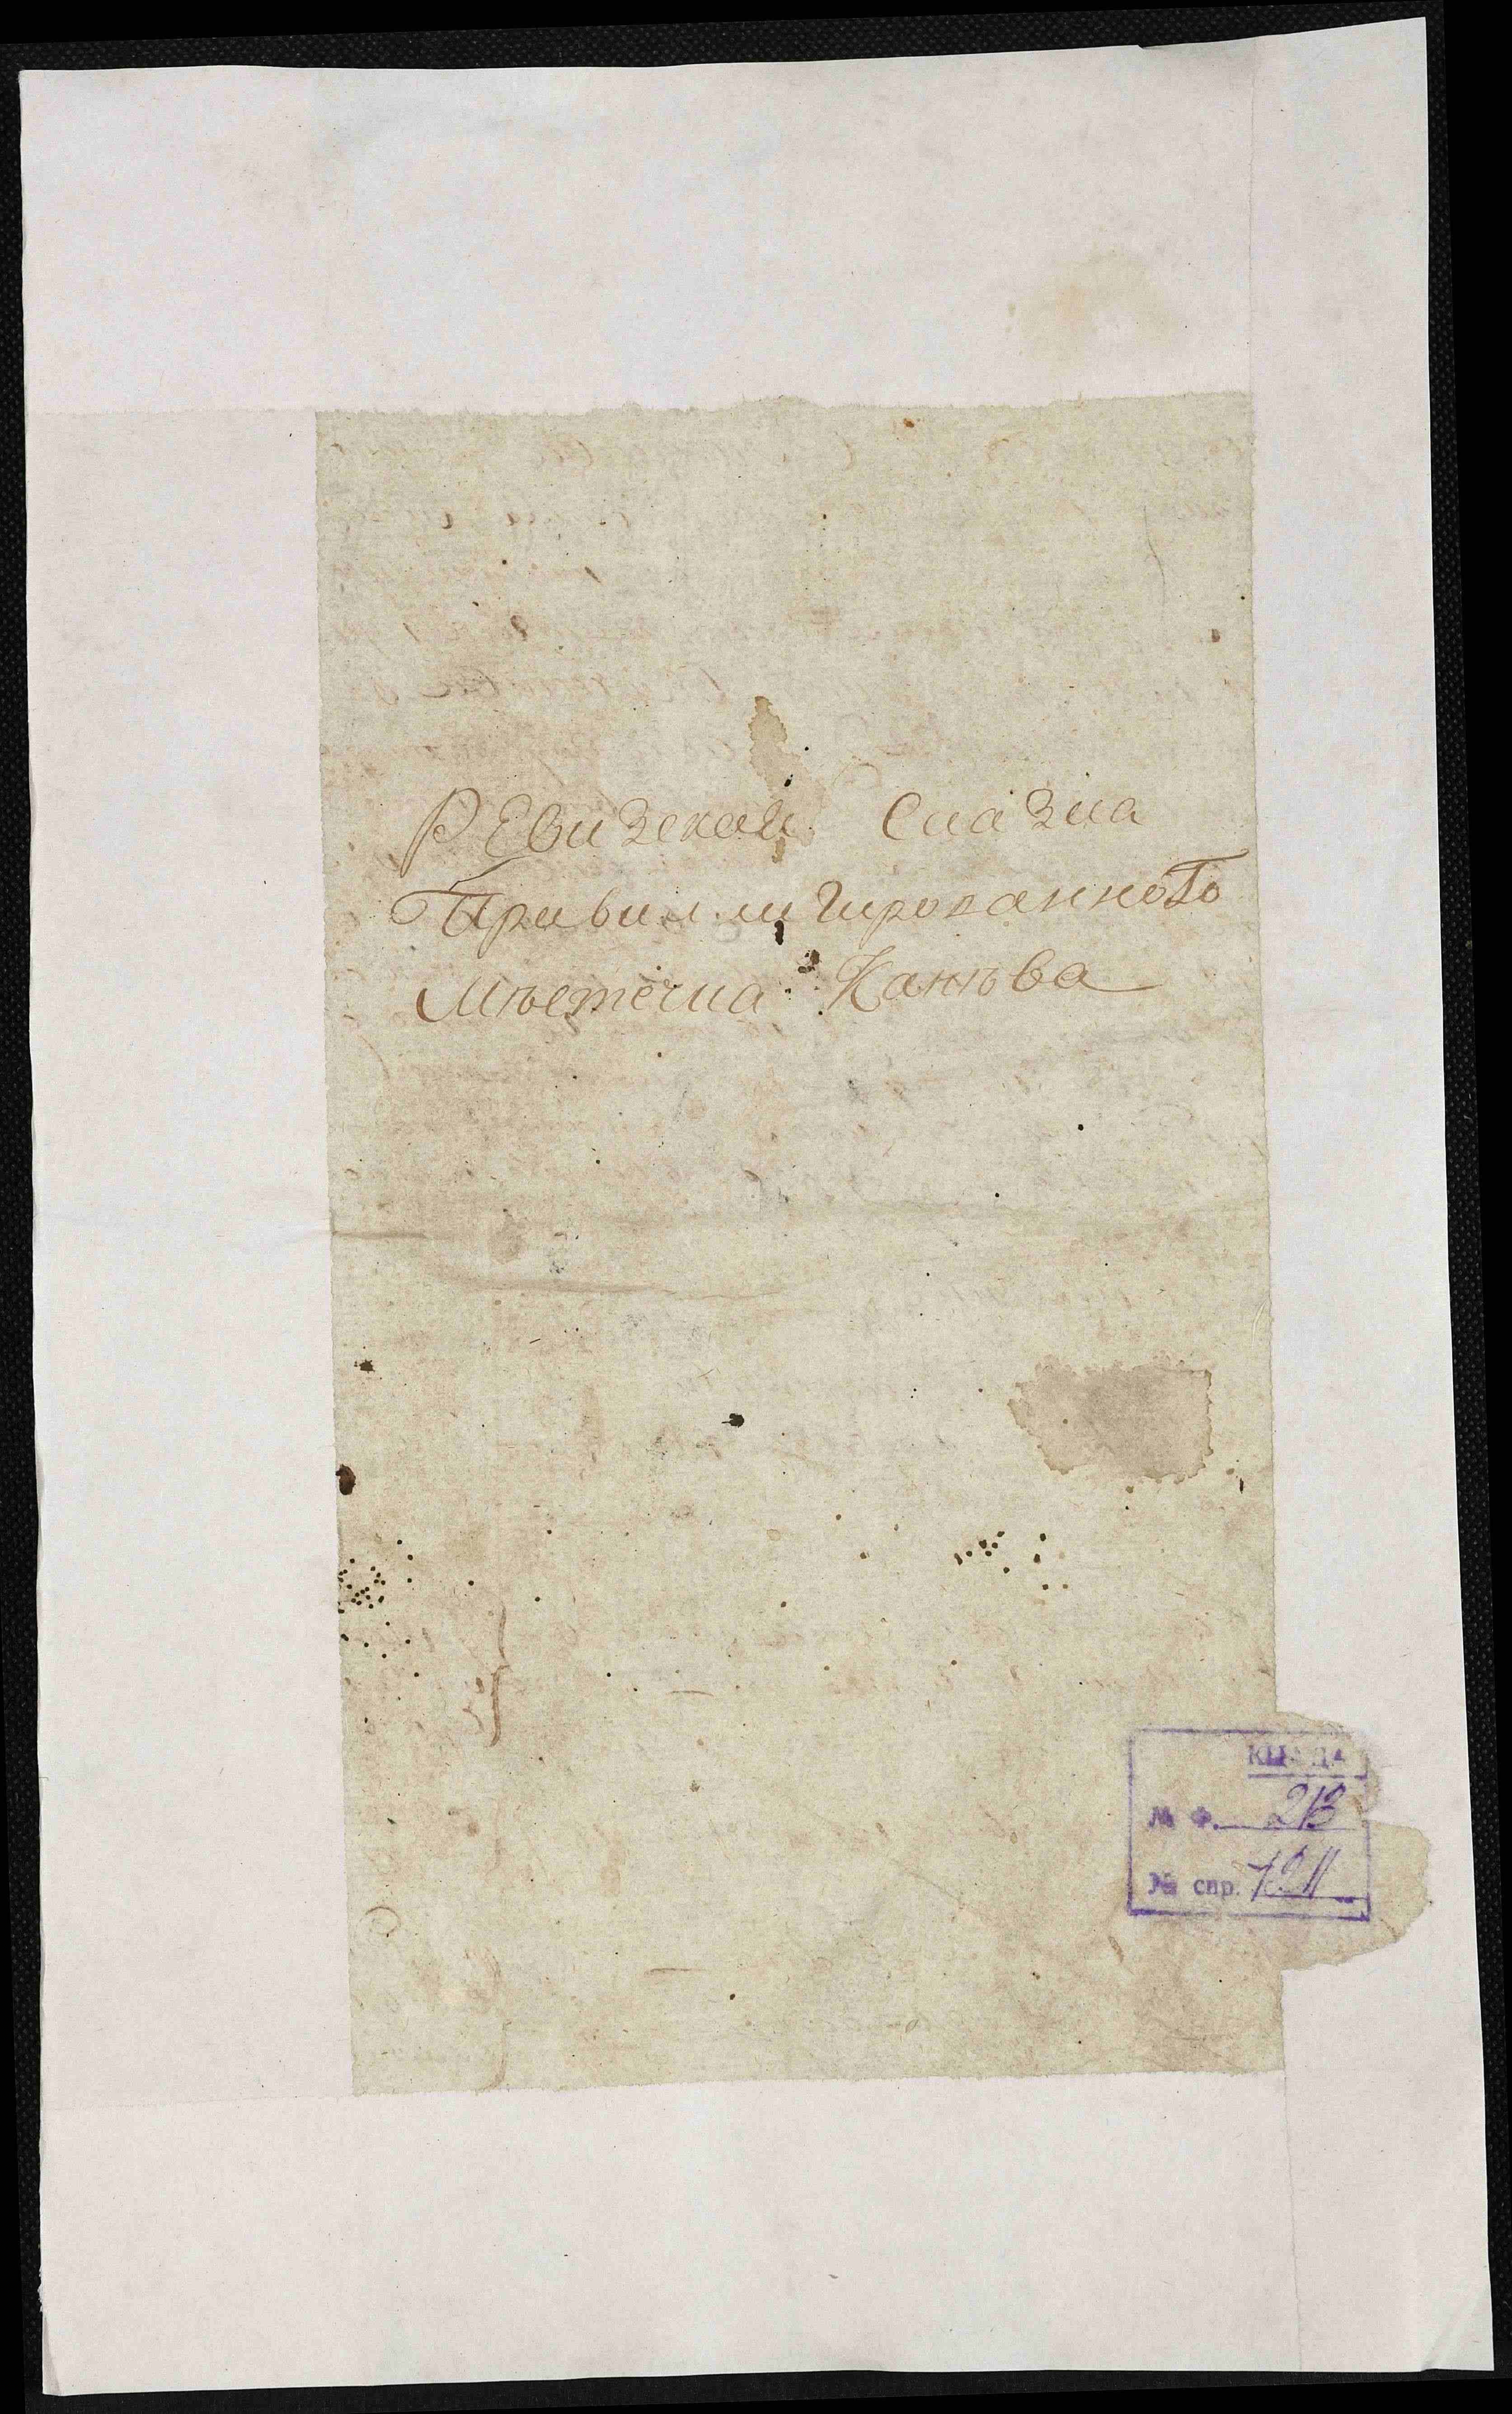 Ревизскои Сказка
Привилигированного
Мѣстечка Канѣва
№ ф. 213
№ спр.